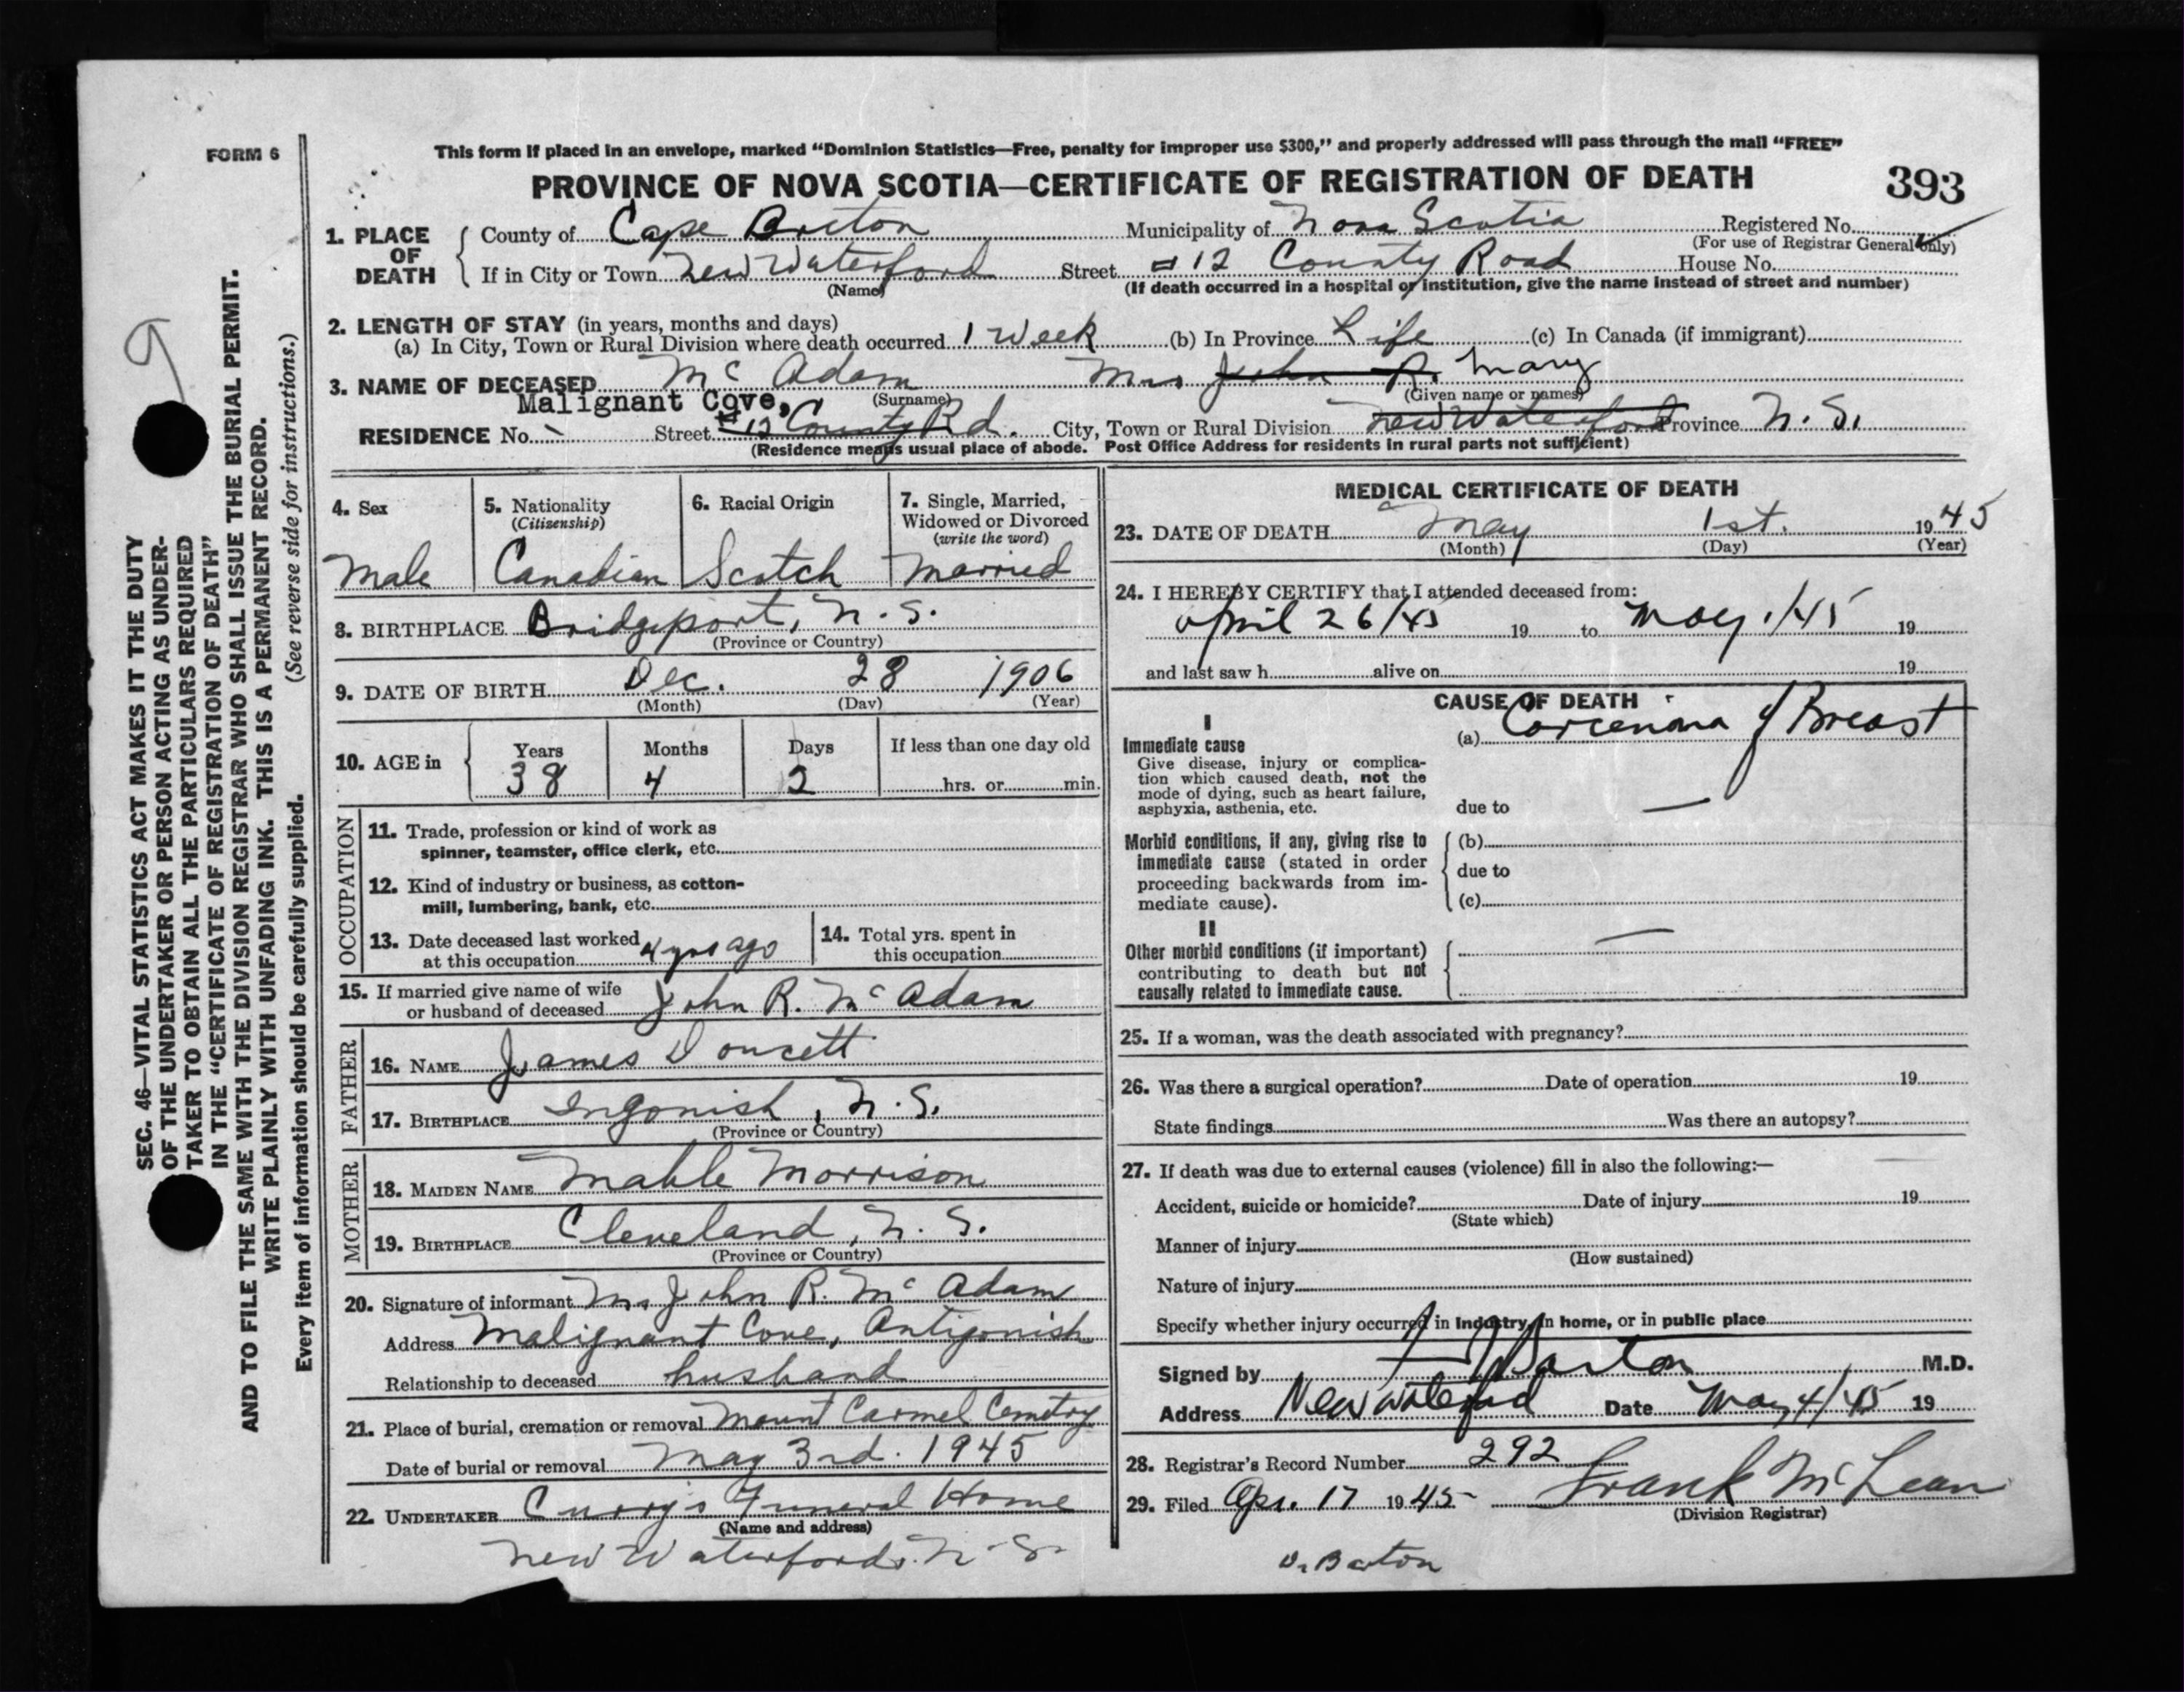 FORM 6
This form if placed in an envelope, marked “Dominion Statistics—Free, penalty for improper use $300,” and properly addressed will pass through the mail “FREE”
PROVINCE OF NOVA SCOTIA—CERTIFICATE OF REGISTRATION OF DEATH
393
1. PLACE OF DEATH
County of Cape Breton Municipality of Nova Scotia Registered No.
(For use of Registrar General only)
If in City or Town New Waterford Street #12 County Road House No.
(Name) (If death occurred in a hospital or institution, give the name instead of street and number)
2. LENGTH OF STAY (in years, months and days)
(a) In City, Town or Rural Division where death occurred 1 week (b) In Province Life (c) In Canada (if immigrant)
3. NAME OF DECEASED Mc Adam Mrs John R. Mary
(Surname) (Given name or names)
Malignant Cove,
RESIDENCE No. Street #12 County Rd. City, Town or Rural Division New Waterford Province N. S.
(Residence means usual place of abode. Post Office Address for residents in rural parts not sufficient)
4. Sex
Male
5. Nationality
(Citizenship)
Canadian
6. Racial Origin
Scotch
7. Single, Married,
Widowed or Divorced
(write the word)
Married
8. BIRTHPLACE Bridgeport, N. S.
(Province or Country)
9. DATE OF BIRTH Dec. 28 1906
(Month) (Day) (Year)
10. AGE in
Years Months Days If less than one day old
38 4 2 hrs. or min.
OCCUPATION
11. Trade, profession or kind of work as
spinner, teamster, office clerk, etc.
12. Kind of industry or business, as cotton-
mill, lumbering, bank, etc.
13. Date deceased last worked
at this occupation 4 yrs ago
14. Total yrs. spent in
this occupation
15. If married give name of wife
or husband of deceased John R. Mc Adam
FATHER
16. NAME James Doucett
17. BIRTHPLACE Ingonish, N. S.
(Province or Country)
MOTHER
18. MAIDEN NAME Mable Morrison
19. BIRTHPLACE Cleveland, N. S.
(Province or Country)
20. Signature of informant Mrs John R. Mc Adam
Address Malignant Cove, Antigonish
Relationship to deceased husband
21. Place of burial, cremation or removal Mount Carmel Cemetry
Date of burial or removal May 3rd. 1945
22. UNDERTAKER Curry's Funeral Home
(Name and address)
New Waterford. N. S.
MEDICAL CERTIFICATE OF DEATH
23. DATE OF DEATH May 1st. 1945
(Month) (Day) (Year)
24. I HEREBY CERTIFY that I attended deceased from:
April 26/45 19 to May 1/45 19
and last saw h alive on 19
CAUSE OF DEATH
I
Immediate cause
Give disease, injury or complica-
tion which caused death, not the
mode of dying, such as heart failure,
asphyxia, asthenia, etc.
(a) Carcenoma of Breast
due to —
Morbid conditions, if any, giving rise to
immediate cause (stated in order
proceeding backwards from im-
mediate cause).
(b)
due to
(c)
II
Other morbid conditions (if important)
contributing to death but not
causally related to immediate cause.
—
25. If a woman, was the death associated with pregnancy?
26. Was there a surgical operation? Date of operation 19
State findings Was there an autopsy?
27. If death was due to external causes (violence) fill in also the following:—
Accident, suicide or homicide? Date of injury 19
(State which)
Manner of injury
(How sustained)
Nature of injury
Specify whether injury occurred in Industry, in home, or in public place
Signed by Barton M.D.
Address New Waterford Date May 4/45 19
28. Registrar's Record Number 292
29. Filed Apr. 17 1945 Frank McLean
(Division Registrar)
Dr Barton
SEC. 46—VITAL STATISTICS ACT MAKES IT THE DUTY
OF THE UNDERTAKER OR PERSON ACTING AS UNDER-
TAKER TO OBTAIN ALL THE PARTICULARS REQUIRED
IN THE “CERTIFICATE OF REGISTRATION OF DEATH”
AND TO FILE THE SAME WITH THE DIVISION REGISTRAR WHO SHALL ISSUE THE BURIAL PERMIT.
WRITE PLAINLY WITH UNFADING INK. THIS IS A PERMANENT RECORD.
(See reverse side for instructions.)
Every item of information should be carefully supplied.